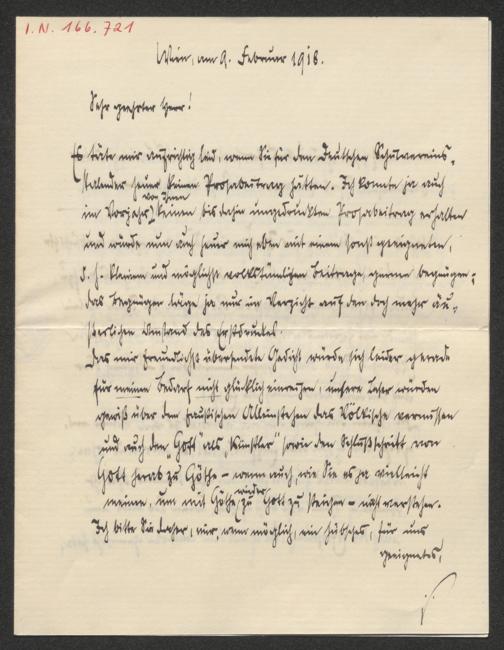 I.N. 166.721
Wien, am 9. Februar 1918.
Sehr geehrter Herr!
Es täte mir aufrichtig leid, wenn Sie für den Deutschen Schulvereins-
kalender heuer keinen Prosabeitrag hätten. Ich konnte ja auch
von Ihnen
im Vorjahr keinen bis dahin ungedruckten Prosabeitrag erhalten
und würde nun auch heuer mich eben mit einem sonst geeigneten,
d. h. kleinen und möglichst volkstümlichen Beitrage gerne begnügen;
das Begnügen läge ja nur im Verzicht auf den doch mehr äu-
ßerlichen Umstand des Erstdruckes.
Das mir freundlichst übersendete Gedicht würde sich leider gerade
für meinen Bedarf nicht glücklich einreihen, unsere Leser würden
gewiß über dem faustischen Alleinstehen das Völkische vermissen
und auch den "Gott" als "Künstler" sowie den Schlußschritt von
Gott herab zu Göthe – wenn auch, wie Sie es ja vielleicht
wieder
meinen, um mit Göthe zu Gott zu steigen – nicht verstehen.
Ich bitte Sie daher, mir, wenn möglich, ein hübsches, für uns
geeignetes,